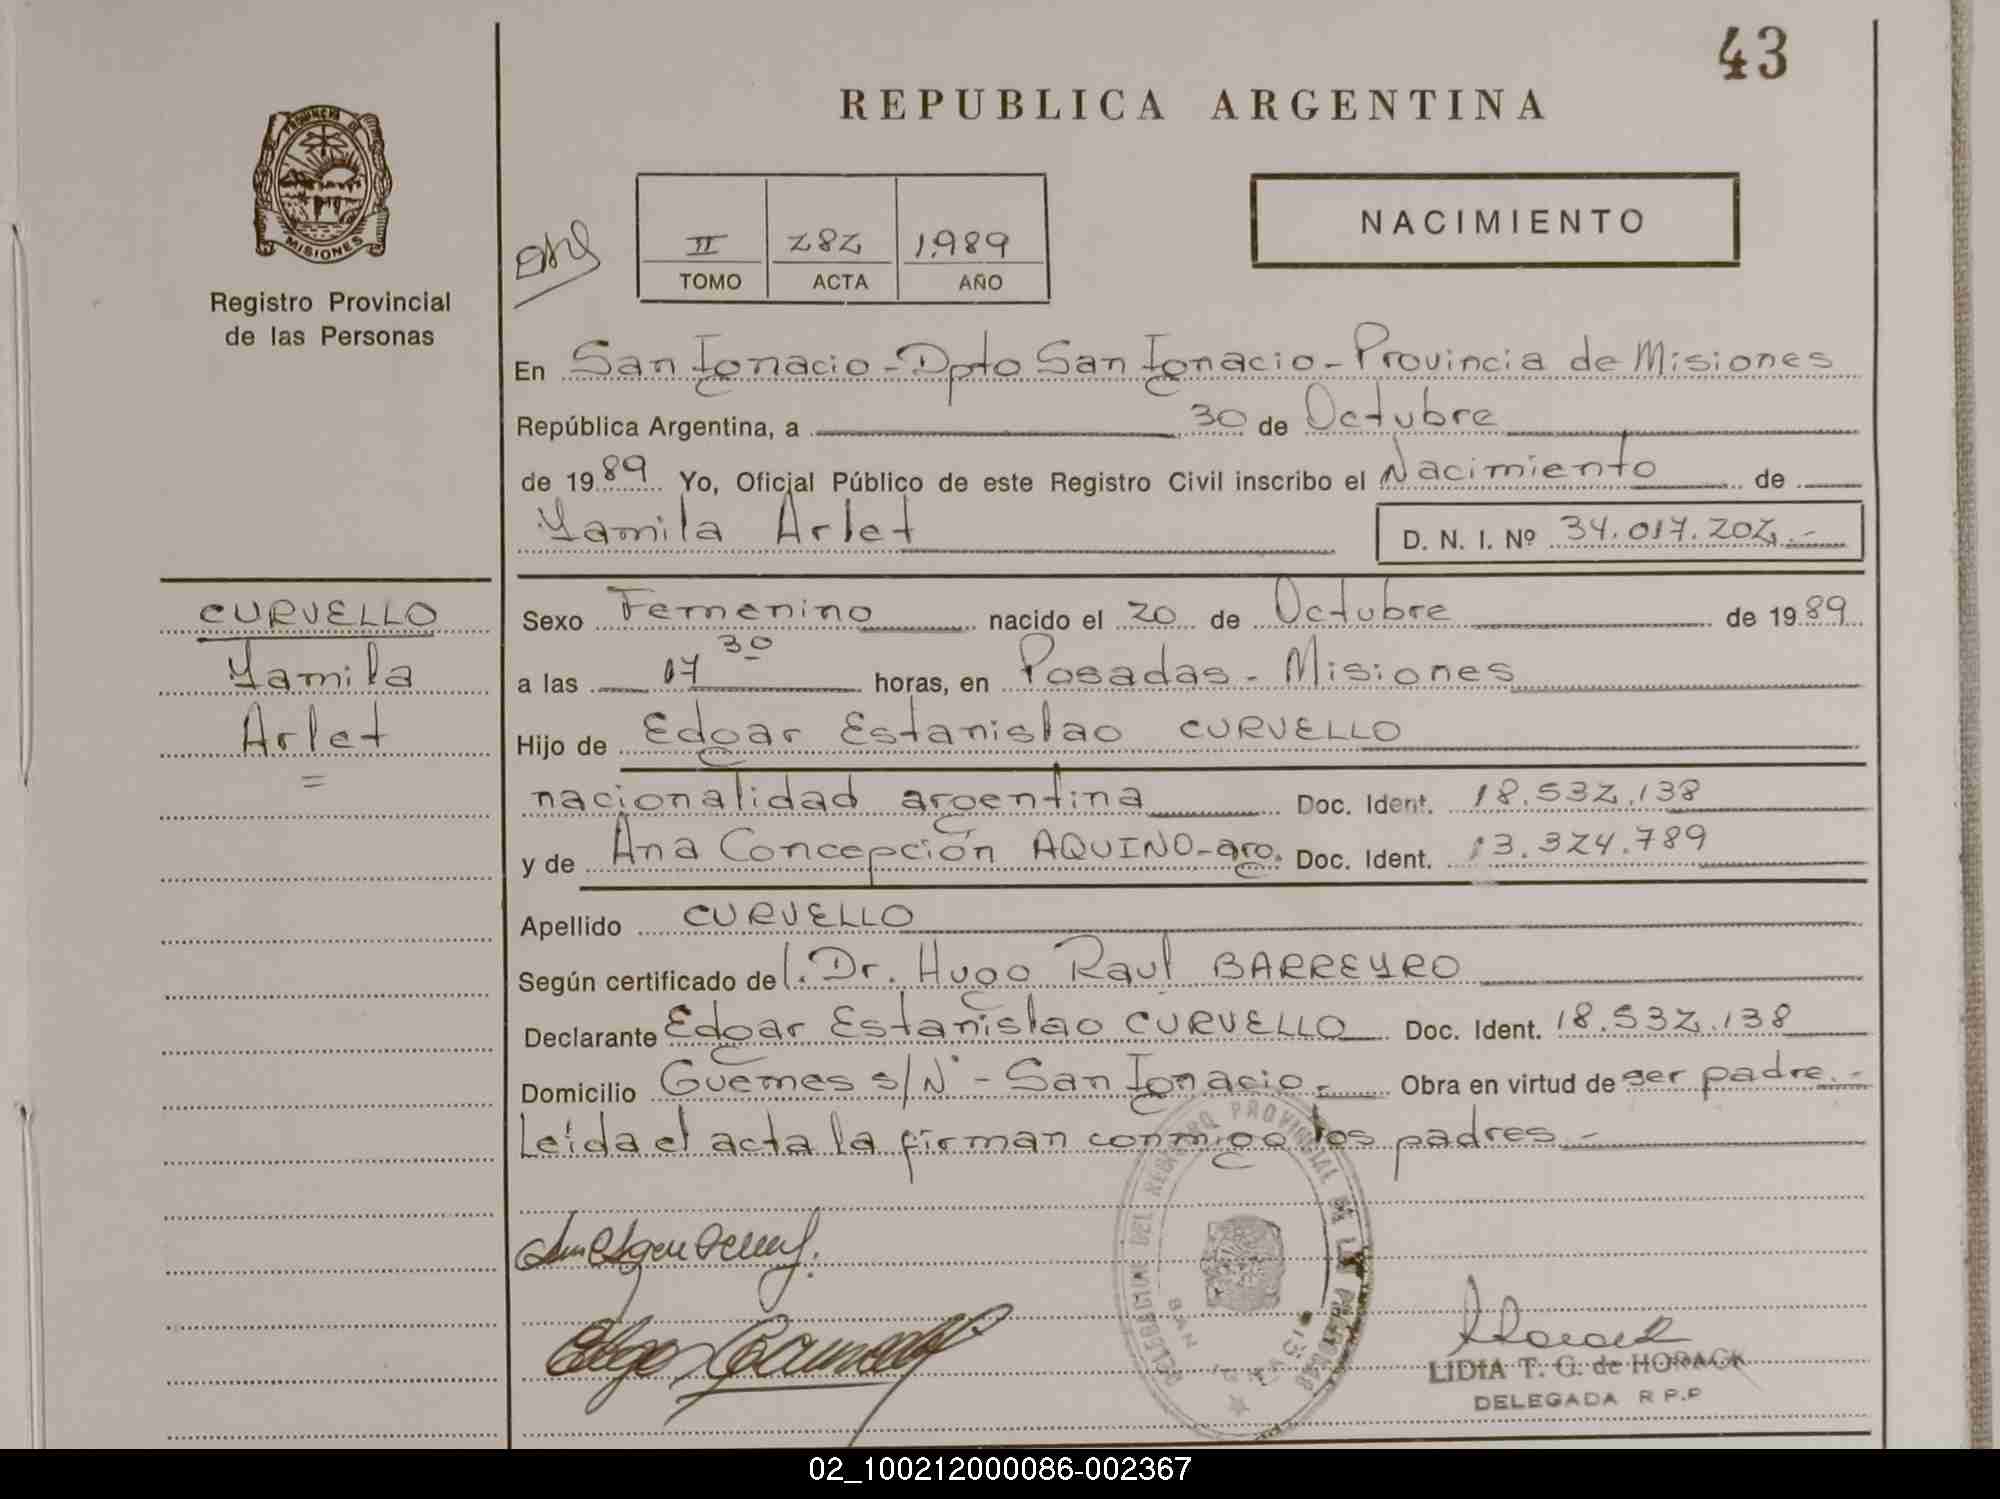 43
REPUBLICA ARGENTINA
PROVINCIA DE
MISIONES
Registro Provincial
de las Personas
II 282 1.989
TOMO ACTA AÑO
NACIMIENTO
En San Ignacio - Dpto San Ignacio - Provincia de Misiones
República Argentina, a 30 de Octubre
de 1989 Yo, Oficial Público de este Registro Civil inscribo el Nacimiento de
Yamila Arlet
D. N. I. Nº 34.017.202.-
CURVELLO
Yamila
Arlet
=
Sexo Femenino nacido el 20 de Octubre de 1989
a las 07 30 horas, en Posadas - Misiones
Hijo de Edgar Estanislao CURVELLO
nacionalidad argentina Doc. Ident. 18.532.138
y de Ana Concepción AQUINO-arg. Doc. Ident. 13.324.789
Apellido CURVELLO
Según certificado del. Dr. Hugo Raul BARREYRO
Declarante Edgar Estanislao CURVELLO Doc. Ident. 18.532.138
Domicilio Guemes s/N° - San Ignacio.- Obra en virtud de ser padre.-
Leída el acta la firman conmigo los padres.-
DELEGACION DEL REGISTRO PROVINCIAL DE LAS PERSONAS
SAN IGNACIO
LIDIA T. G. de HORACK
DELEGADA R P.P
02_100212000086-002367